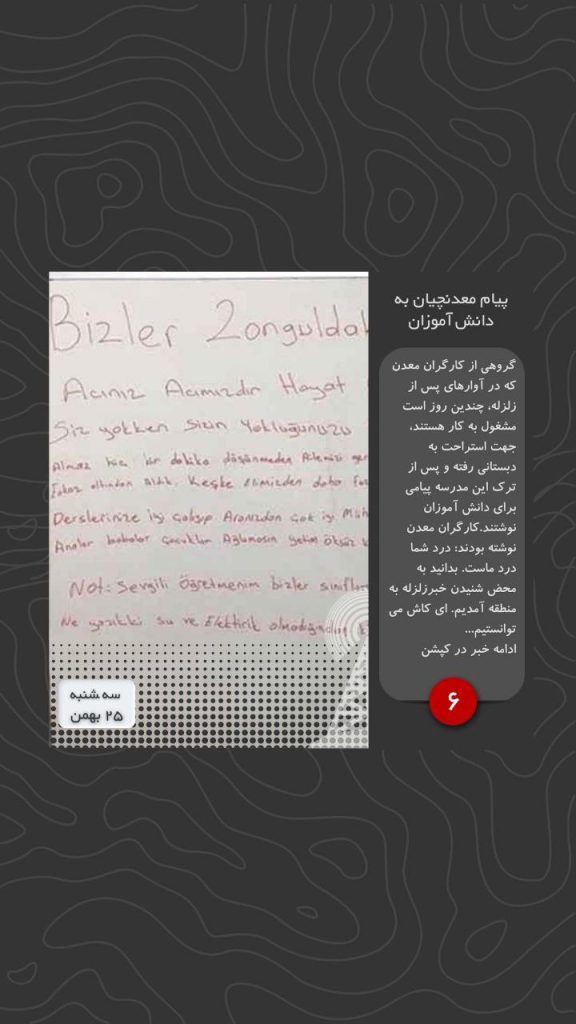 پیام معدنچیان به
دانش آموزان
گروهی از کارگران معدن
که در آوارهای پس از
زلزله، چندین روز است
مشغول به کار هستند،
جهت استراحت به
دبستانی رفته و پس از
ترک این مدرسه پیامی
برای دانش آموزان
نوشتند.کارگران معدن
نوشته بودند: درد شما
درد ماست. بدانید به
محض شنیدن خبرزلزله به
منطقه آمدیم. ای کاش می
توانستیم...
ادامه خبر در کپشن
۶
Bizler Zongulda
Acınız Acımızdır Hayat
Siz yokken sizin Yokluğunuzu
Almaz hiç bir dakika düşünmeden
altından Aldık. Keşke Elimizden daha
Derslerinize iyi çalışıp Aranızdan çok iyi Müh
Analar babalar çocuklar Ağlamasın yetim öksüz
Not: Sevgili Öğretmenim bizler sınıfları
Ne yazıkki su ve Elektirik olmadığından
سه شنبه
۲۵ بهمن